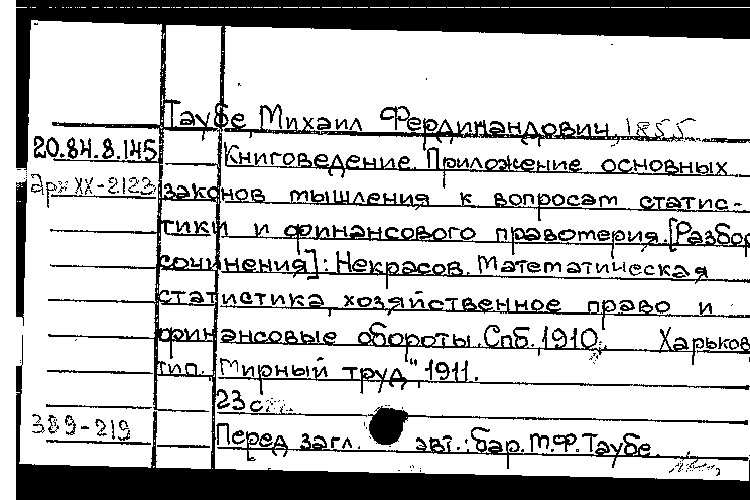 Таубе, Михаил Фердинандович, 1855
20.84.8.145 Книговедение. Приложение основных
Арх XX-2123 законов мышления к вопросам статис-
тики и финансового правомерия. [Разбор
сочинения]: Некрасов. Математическая
статистика, хозяйственное право и
финансовые обороты. Спб., 1910. Харьков
тип. „Мирный труд", 1911.
23 с.
389-219 Перед загл. авт.: бар. М.Ф. Таубе.